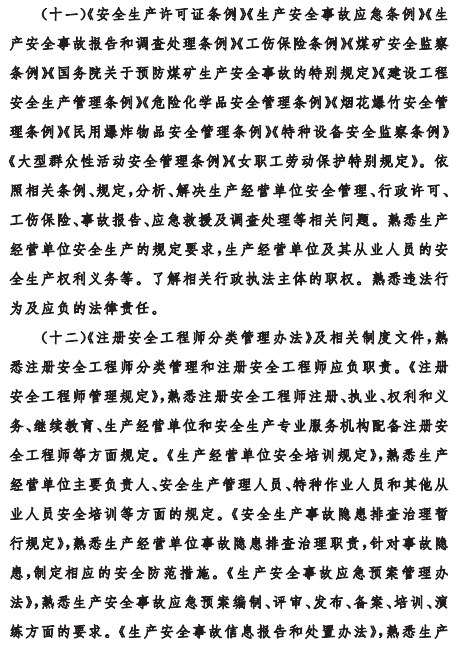 （十一）《安全生产许可证条例》《生产安全事故应急条例》《生
产安全事故报告和调查处理条例》《工伤保险条例》《煤矿安全监察
条例》《国务院关于预防煤矿生产安全事故的特别规定》《建设工程
安全生产管理条例》《危险化学品安全管理条例》《烟花爆竹安全管
理条例》《民用爆炸物品安全管理条例》《特种设备安全监察条例》
《大型群众性活动安全管理条例》《女职工劳动保护特别规定》。依
照相关条例、规定，分析、解决生产经营单位安全管理、行政许可、
工伤保险、事故报告、应急救援及调查处理等相关问题。熟悉生产
经营单位安全生产的规定要求，生产经营单位及其从业人员的安
全生产权利义务等。了解相关行政执法主体的职权。熟悉违法行
为及应负的法律责任。
（十二）《注册安全工程师分类管理办法》及相关制度文件，熟
悉注册安全工程师分类管理和注册安全工程师应负职责。《注册
安全工程师管理规定》，熟悉注册安全工程师注册、执业、权利和义
务、继续教育、生产经营单位和安全生产专业服务机构配备注册安
全工程师等方面规定。《生产经营单位安全培训规定》，熟悉生产
经营单位主要负责人、安全生产管理人员、特种作业人员和其他从
业人员安全培训等方面的规定。《安全生产事故隐患排查治理暂
行规定》，熟悉生产经营单位事故隐患排查治理职责，针对事故隐
患，制定相应的安全防范措施。《生产安全事故应急预案管理办
法》，熟悉生产安全事故应急预案编制、评审、发布、备案、培训、演
练方面的要求。《生产安全事故信息报告和处置办法》，熟悉生产